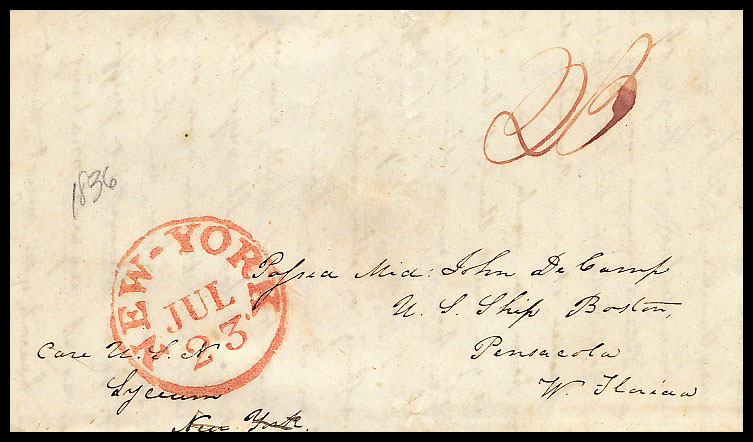 25
1836
NEW-YORK
JUL
23
Passed Mid: John De Camp
U. S. Ship Boston,
Pensacola
W. Florida
Care U. S. N.
Lyceum
New York.